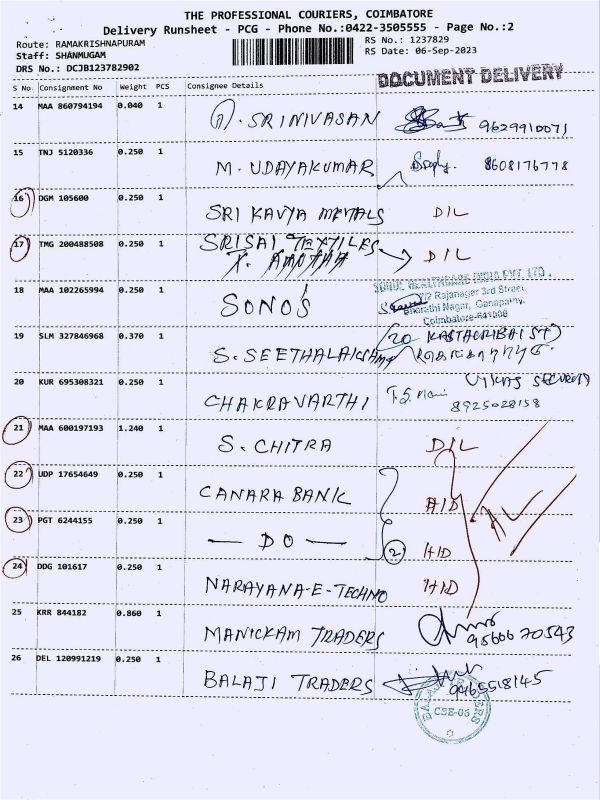 THE PROFESSIONAL COURIERS, COIMBATORE
Delivery Runsheet - PCG - Phone No.:0422-3505555 - Page No.:2
Route: RAMAKRISHNAPURAM
Staff: SHANMUGAM
DRS No.: DCJB123782902
RS No.: 1237829
RS Date: 06-Sep-2023
DOCUMENT DELIVERY
S No Consignment No Weight PCS Consignee Details
14 MAA 860794194 0.040 1 SRINIVASAN 9629910071
15 TNJ 5120336 0.250 1 M. UDAYAKUMAR 8608176778
16 DGM 105600 0.250 1 SRI KAVYA METALS D/L
17 TMG 200488508 0.250 1 SRISAI TEXTILES D/L
T. AMUTHA
18 MAA 102265994 0.250 1 SONO'S
7/2 Rajanagar 3rd Street,
Bharathi Nagar, Ganapathy,
Coimbatore-641006
19 SLM 327846968 0.370 1 S. SEETHALAKSAMY
20 KASTHURIBAI ST)
20 KUR 695308321 0.250 1 CHAKRAVARTHI
VIKAS SECURITY
8925028158
21 MAA 600197193 1.240 1 S. CHITRA D/L
22 UDP 17654649 0.250 1 CANARA BANK H/D
23 PGT 6244155 0.250 1 — DO — (2) H/D
24 DDG 101617 0.250 1 NARAYANA-E-TECHNO H/D
25 KRR 844182 0.860 1 MANICKAM TRADERS 9566670543
26 DEL 120991219 0.250 1 BALAJI TRADERS 9965518145
BALAJI TRADERS
CBE-06